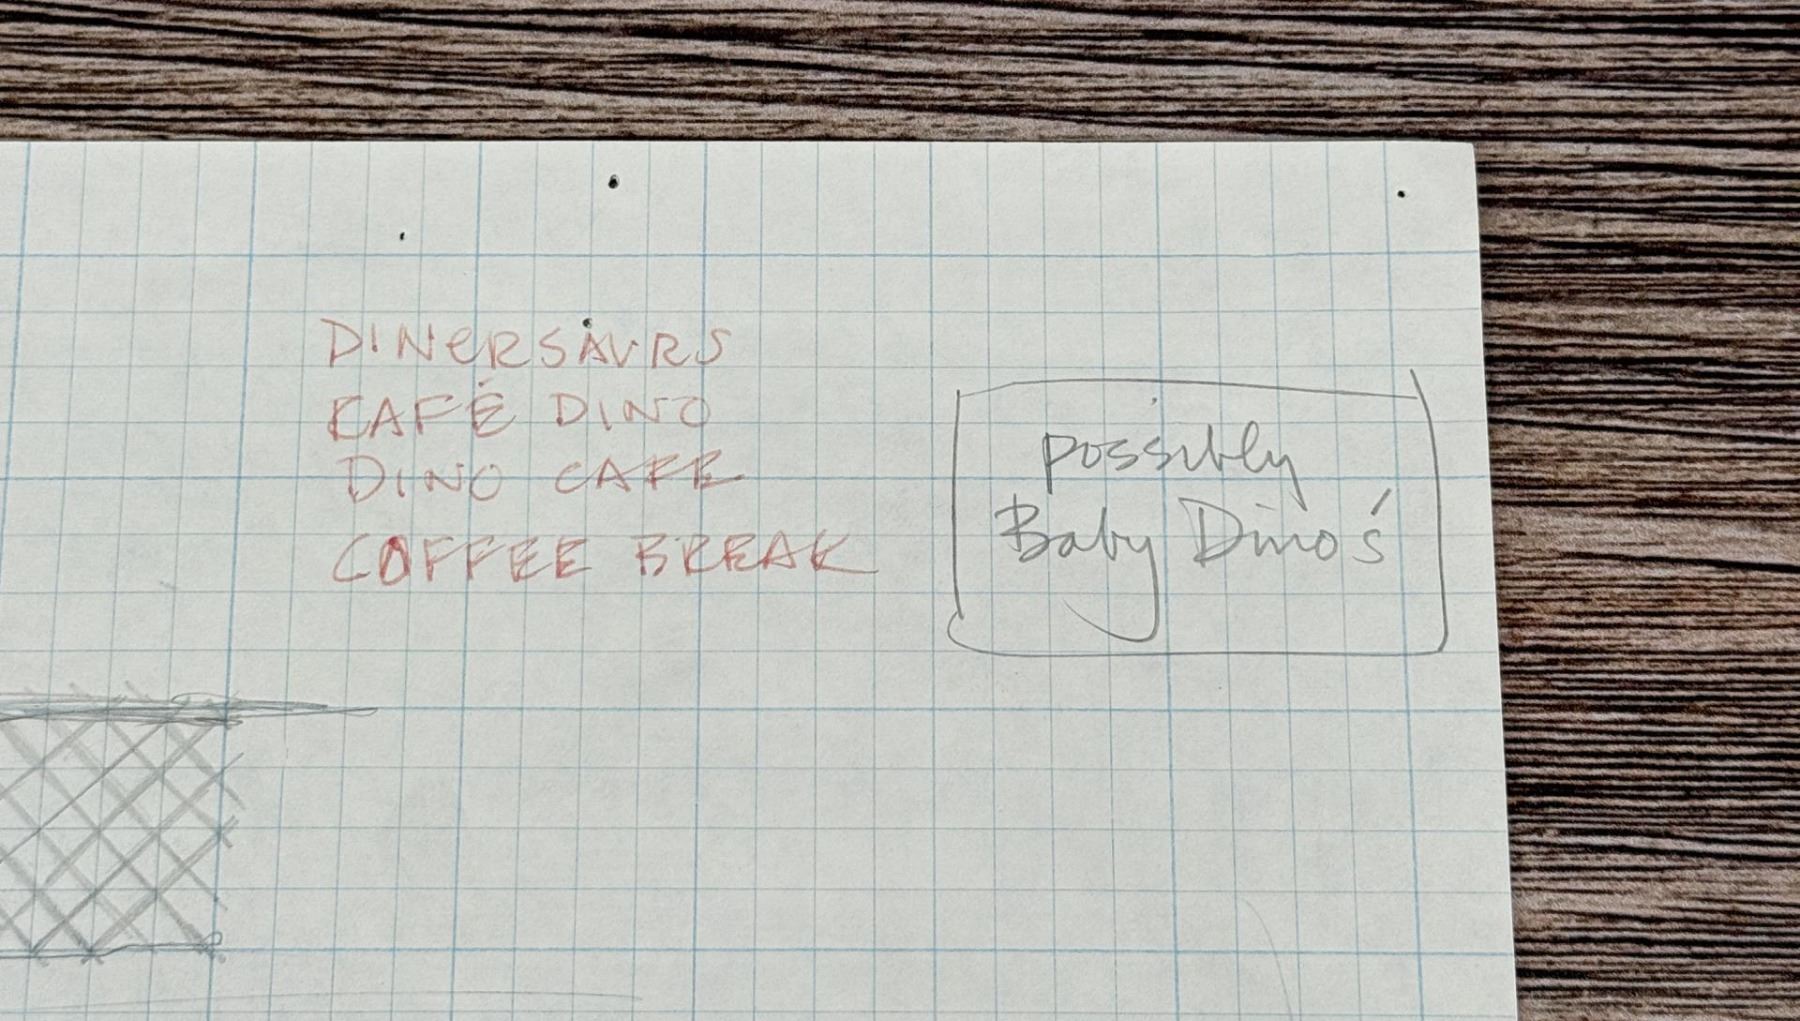 DINERSAURS
CAFÉ DINO
DINO CAFE
COFFEE BREAK
possibly
Baby Dino's